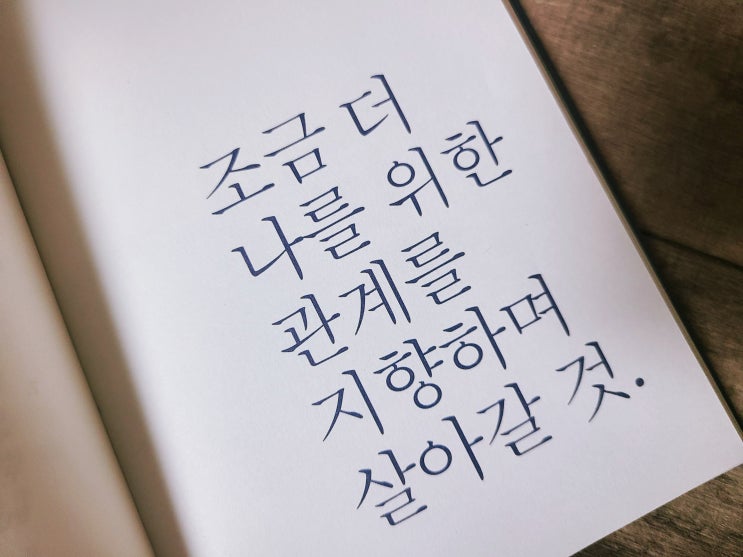 조금 더
나를 위한
관계를
지향하며
살아갈 것.